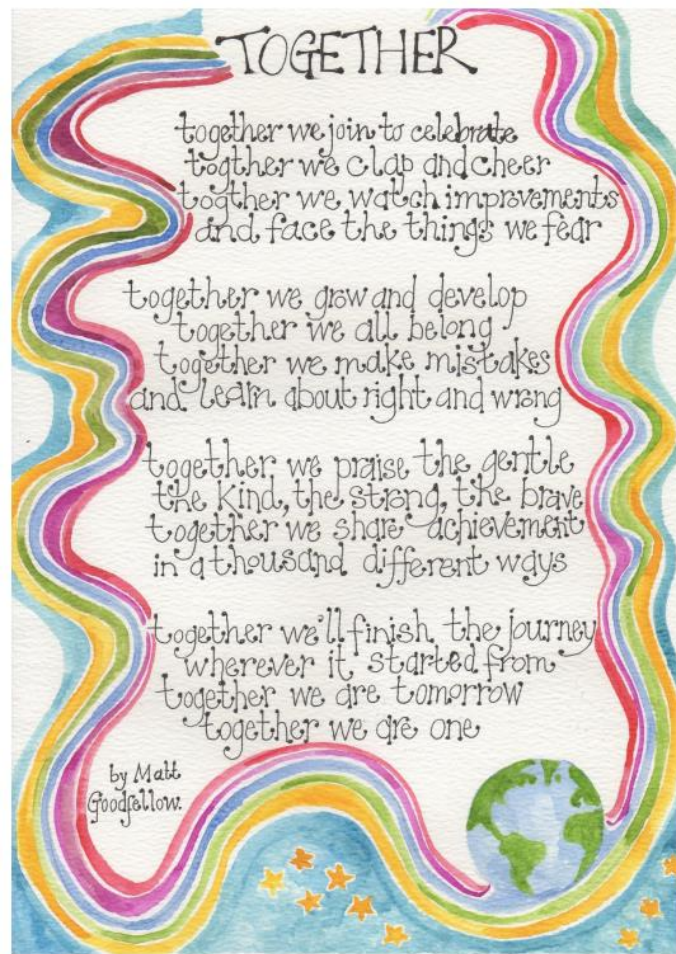 TOGETHER
together we join to celebrate
togther we clap and cheer
togther we watch improvements
and face the things we fear
together we grow and develop
together we all belong
together we make mistakes
and learn about right and wrong
together we praise the gentle
the kind, the strong, the brave
together we share achievement
in a thousand different ways
together we'll finish the journey
wherever it started from
together we are tomorrow
together we are one
by Matt
Goodfellow.